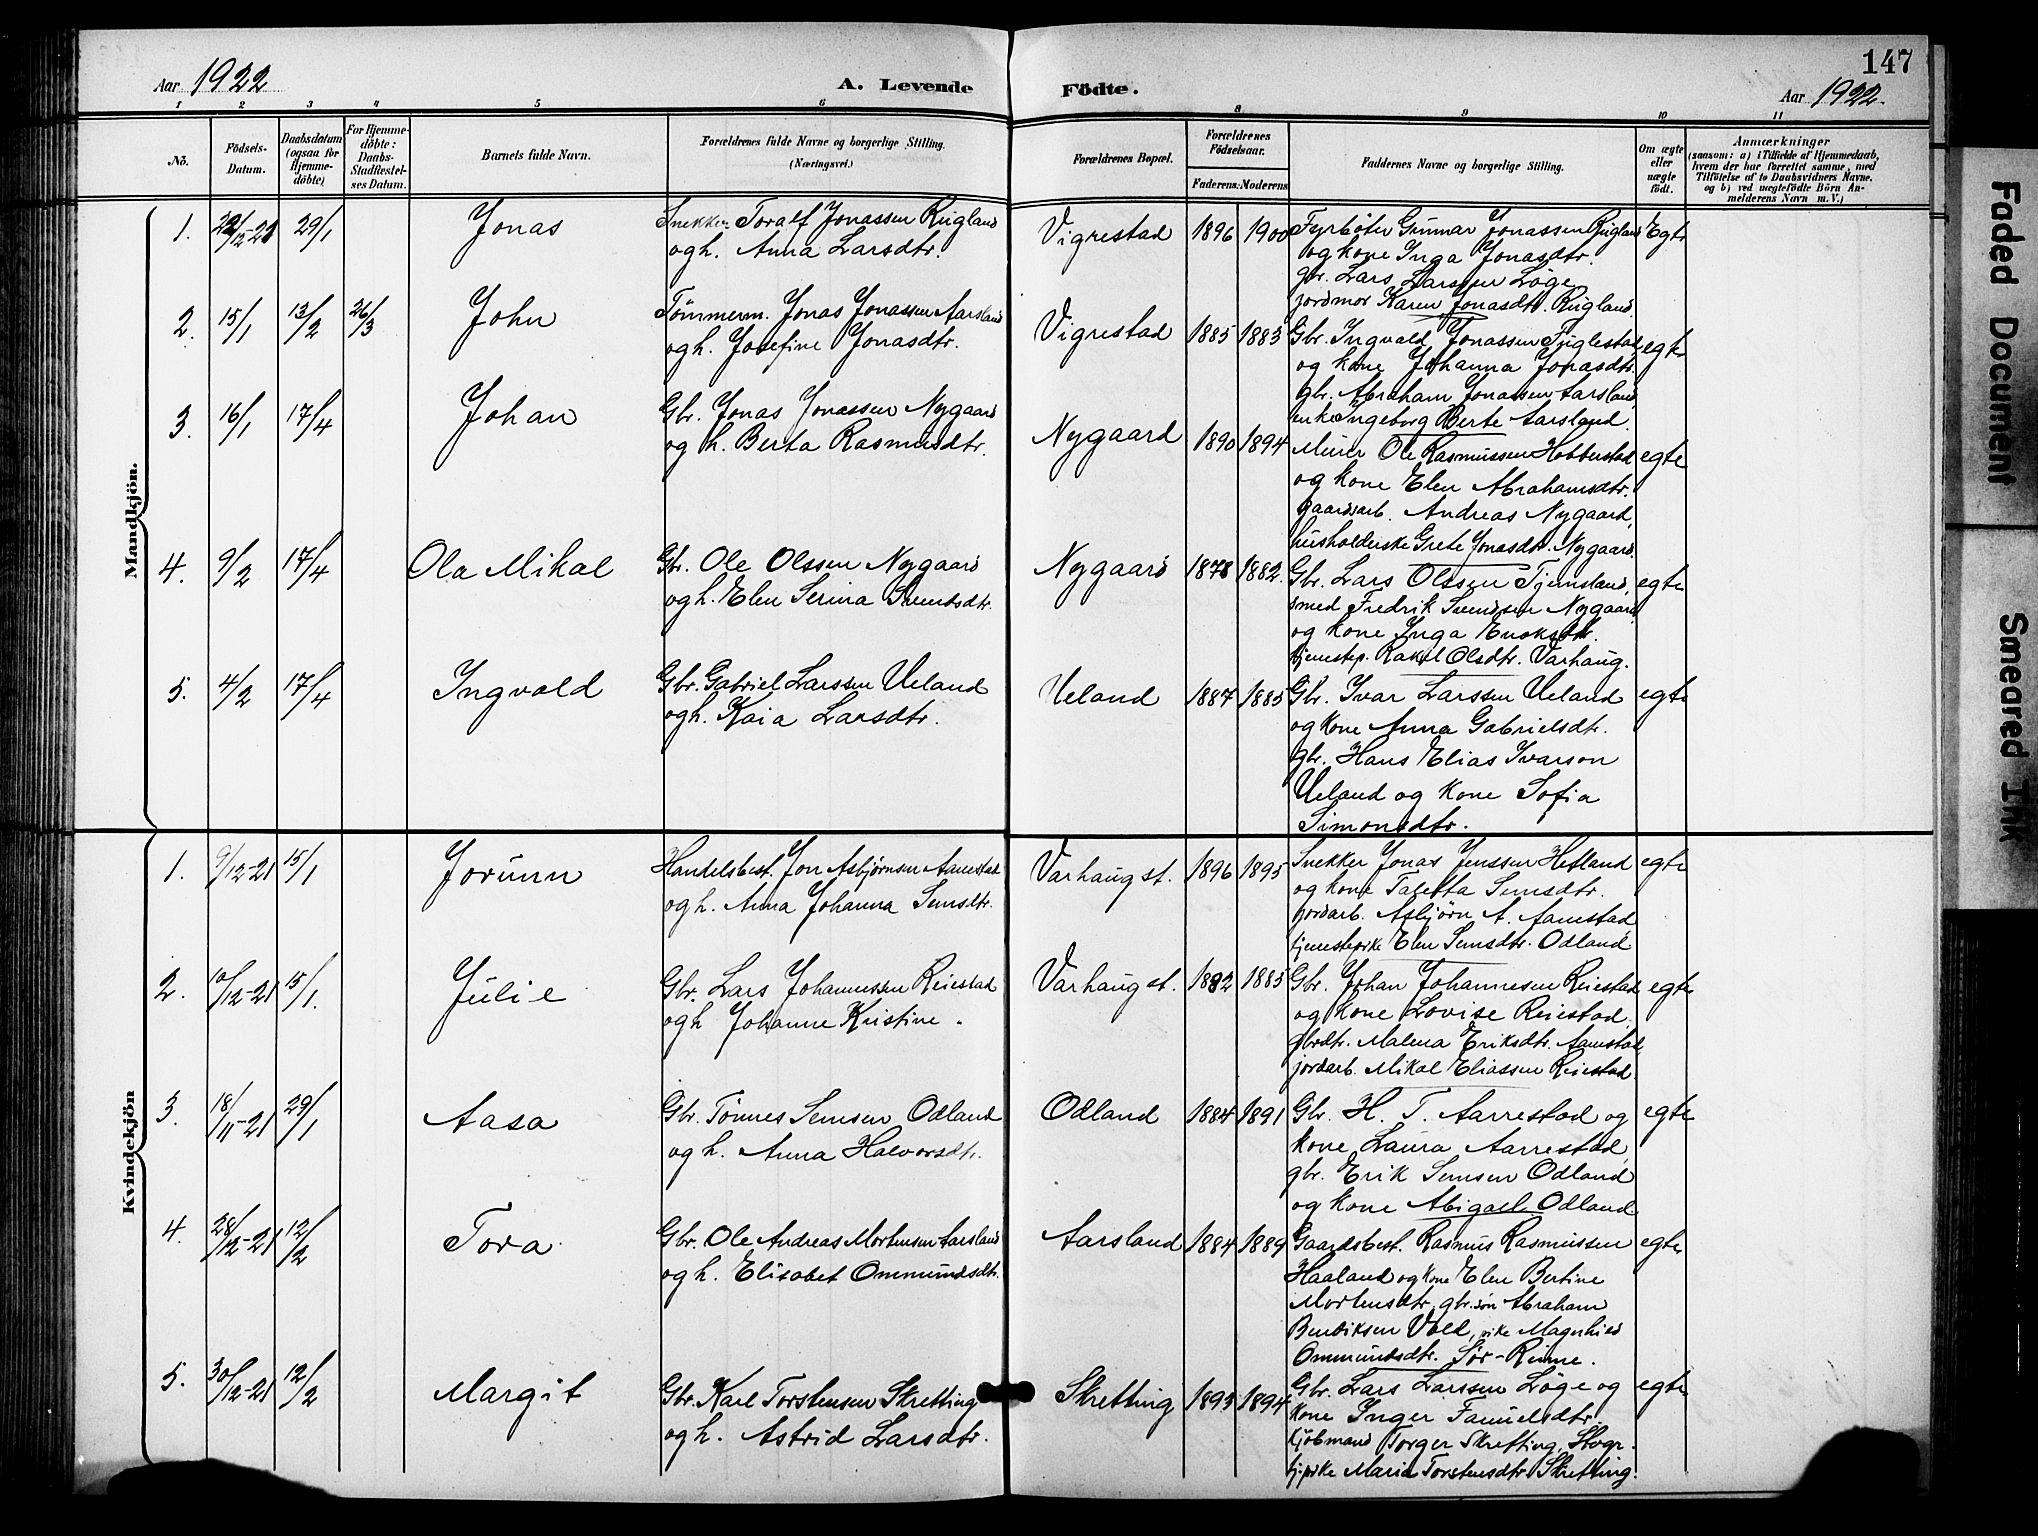 147
Aar 1922
A. Levende
Födte.
Aar 1922.
1 2 3 4 5 6 8 9 10 11
Nö.
Födsels-
Datum.
Daabsdatum
(ogsaa for
Hjemme-
döbte)
For Hjemme-
döbte:
Daabs-
Stadfæstel-
ses Datum.
Barnets fulde Navn.
Forældrenes fulde Navne og borgerlige Stilling.
(Næringsvei.)
Forældrenes Bopæl.
Forældrenes
Födselsaar.
Faderens.
Moderens
Faddernes Navne og borgerlige Stilling.
Om ægte
eller
uægte
födt.
Anmærkninger
(saasom: a) i Tilfælde af Hjemmedaab,
hvem der har forrettet samme, med
Tilföielse af to Daabsvidners Navne.
og b) ved uægtefödte Börn An-
melderens Navn m.V.)
Mandkjön.
1. 29/1 Jonas
Snekker Toralf Jonassen Rugland
og h. Anna Larsdtr.
Vigrestad 1896 1900
Fyrbøter Gunnar Jonassen Rugland
og kone Inga Jonasdtr.
gbr. Lars Larssen Løge
jordmor Karen Jonasdtr. Rugland.
Egte
2. 15/1 13/2 26/3 John
Tömmerm. Jonas Jonassen Aarsland
og h. Josefine Jonasdtr.
Vigrestad 1885 1883
Gbr. Ingvald Jonassen Fuglestad
og kone Johanna Jonasdtr.
gbr. Abraham Jonassen Aarsland,
enke Ingeborg Berte Aarsland.
egte
3. 16/1 17/4 Johan
Gbr. Jonas Jonassen Nygaard
og h. Berta Rasmusdtr.
Nygaard 1890 1894
Murer Ole Rasmussen Hobberstad
og kone Elen Abrahamsdtr.
gaardsarb. Andreas Nygaard,
husholderske Grete Jonasdtr. Nygaard.
egte
4. 9/2 17/4 Ola Mikal
Gbr. Ole Olssen Nygaard
og h. Elen Serina Svendsdtr.
Nygaard 1878 1882.
Gbr. Lars Olssen Tjemsland,
smed Fredrik Svendsen Nygaard
og kone Inga Enoksdtr.
tjenestep. Rakel Olsdtr. Varhaug.
egte
5. 4/2 17/4 Ingvald
Gbr. Gabriel Larssen Ueland
og h. Kaia Larsdtr.
Ueland 1887 1885
Gbr. Ivar Larssen Ueland
og kone Anna Gabrielsdtr.
gbr. Hans Elias Ivarson
Ueland og kone Sofia
Simonsdtr.
egte
Kvindekjön
1. 9/12-21 15/1 Jorunn
Handelsbest. Jon Asbjørnsen Aanestad
og h. Anna Johanna Semsdtr.
Varhaug st. 1896 1895
Snekker Jonas Jenssen Hetland
og kone Taletta Semsdtr.
jordarb. Asbjørn A. Aanestad
tjenestepike Elen Semsdtr. Odland
egte
2. 10/12-21 15/1. Julie
Gbr. Lars Johannessen Reiestad
og h Johanne Kristine.
Varhaug st. 1882 1885
Gbr. Johan Johannesen Reiestad
og kone Lovise Reiestad.
gbrdtr. Malena Eriksdtr. Aanestad,
jordarb. Mikal Eliassen Reiestad.
egte
3. 18/11-21 29/1 Aasa
Gbr. Tönnes Semsen Odland
og h. Anna Halvorsdtr.
Odland 1884 1891
Gbr. H. T. Aarrestad og
kone Laura Aarrestad,
gbr. Erik Semsen Odland
og kone Abigael Odland
egte
4. 28/12-21 12/2 Tora
Gbr. Ole Andreas Mortensen Aarsland
og h. Elisabet Ommundsdtr.
Aarsland 1884 1889
Gaardsbest. Rasmus Rasmussen
Haaland og kone Elen Bertine
Mortensdtr. gbr.søn Abraham
Bendiksen Vold, pike Magnhild
Ommundsdtr. Sør-Reime.
egte
5. 30/12-21 12/2 Margit
Gbr. Karl Torstensen Skretting
og h. Astrid Larsdtr.
Skretting 1893 1894
Gbr. Lars Larssen Løge og
kone Inger Samuelsdtr.
kjøbmand Torger Skretting, Stogr.
tj.pike Maria Torstensdtr. Skretting.
egte
Faded Document
Smeared Ink